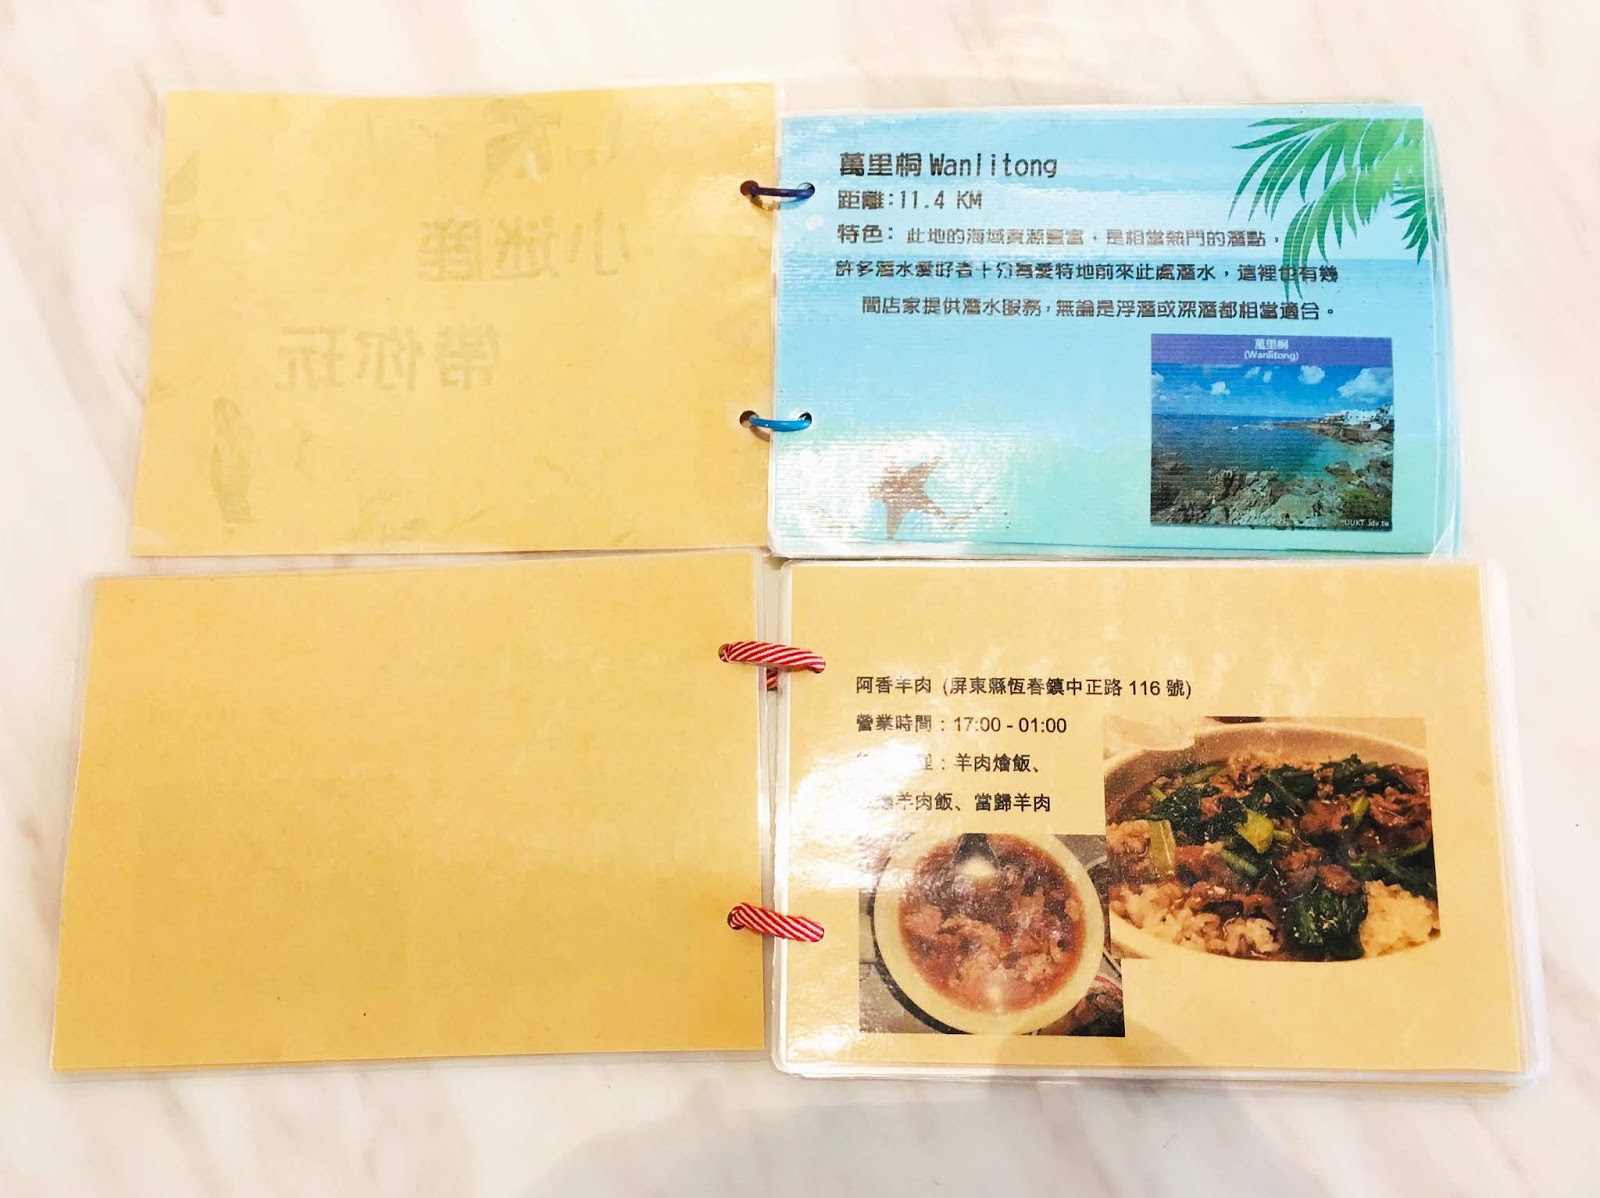 小迷鹿
帶你玩
萬里桐 Wanlitong
距離：11.4 KM
特色： 此地的海域資源豐富，是相當熱門的潛點，
許多潛水愛好者十分喜愛特地前來此處潛水，這裡也有幾
間店家提供潛水服務，無論是浮潛或深潛都相當適合。
萬里桐
(Wanlitong)
阿香羊肉 (屏東縣恆春鎮中正路 116 號)
營業時間：17:00 - 01:00
：羊肉燴飯、
羊肉飯、當歸羊肉